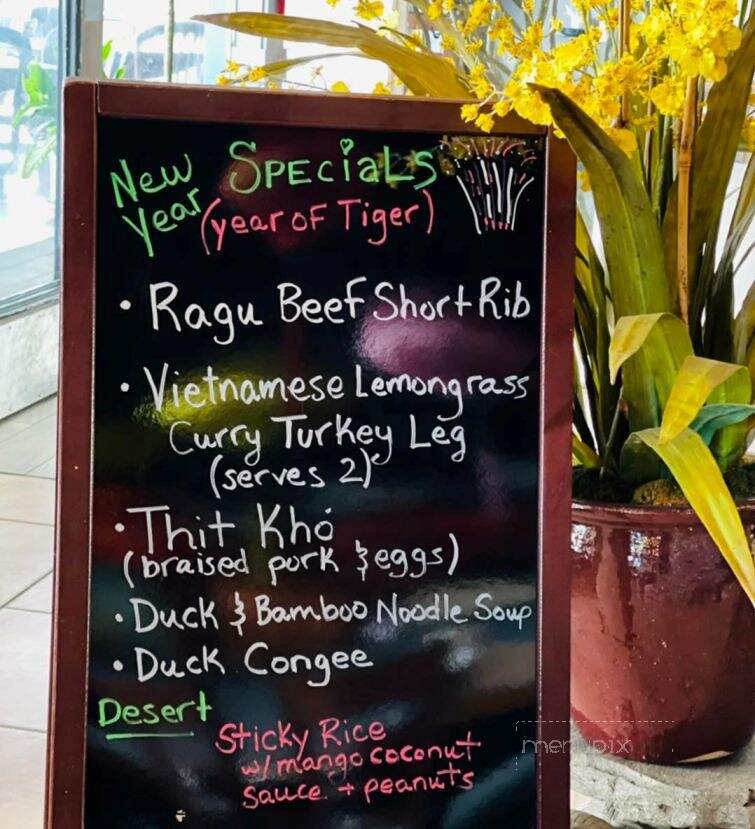 New Year SPECiaLS
(year of Tiger)
• Ragu Beef Short Rib
• Vietnamese Lemongrass
Curry Turkey Leg
(serves 2)
• Thit Khó
(braised pork & eggs)
• Duck & Bamboo Noodle Soup
• Duck Congee
Desert
Sticky Rice
w/ mango coconut
sauce + peanuts
menupix